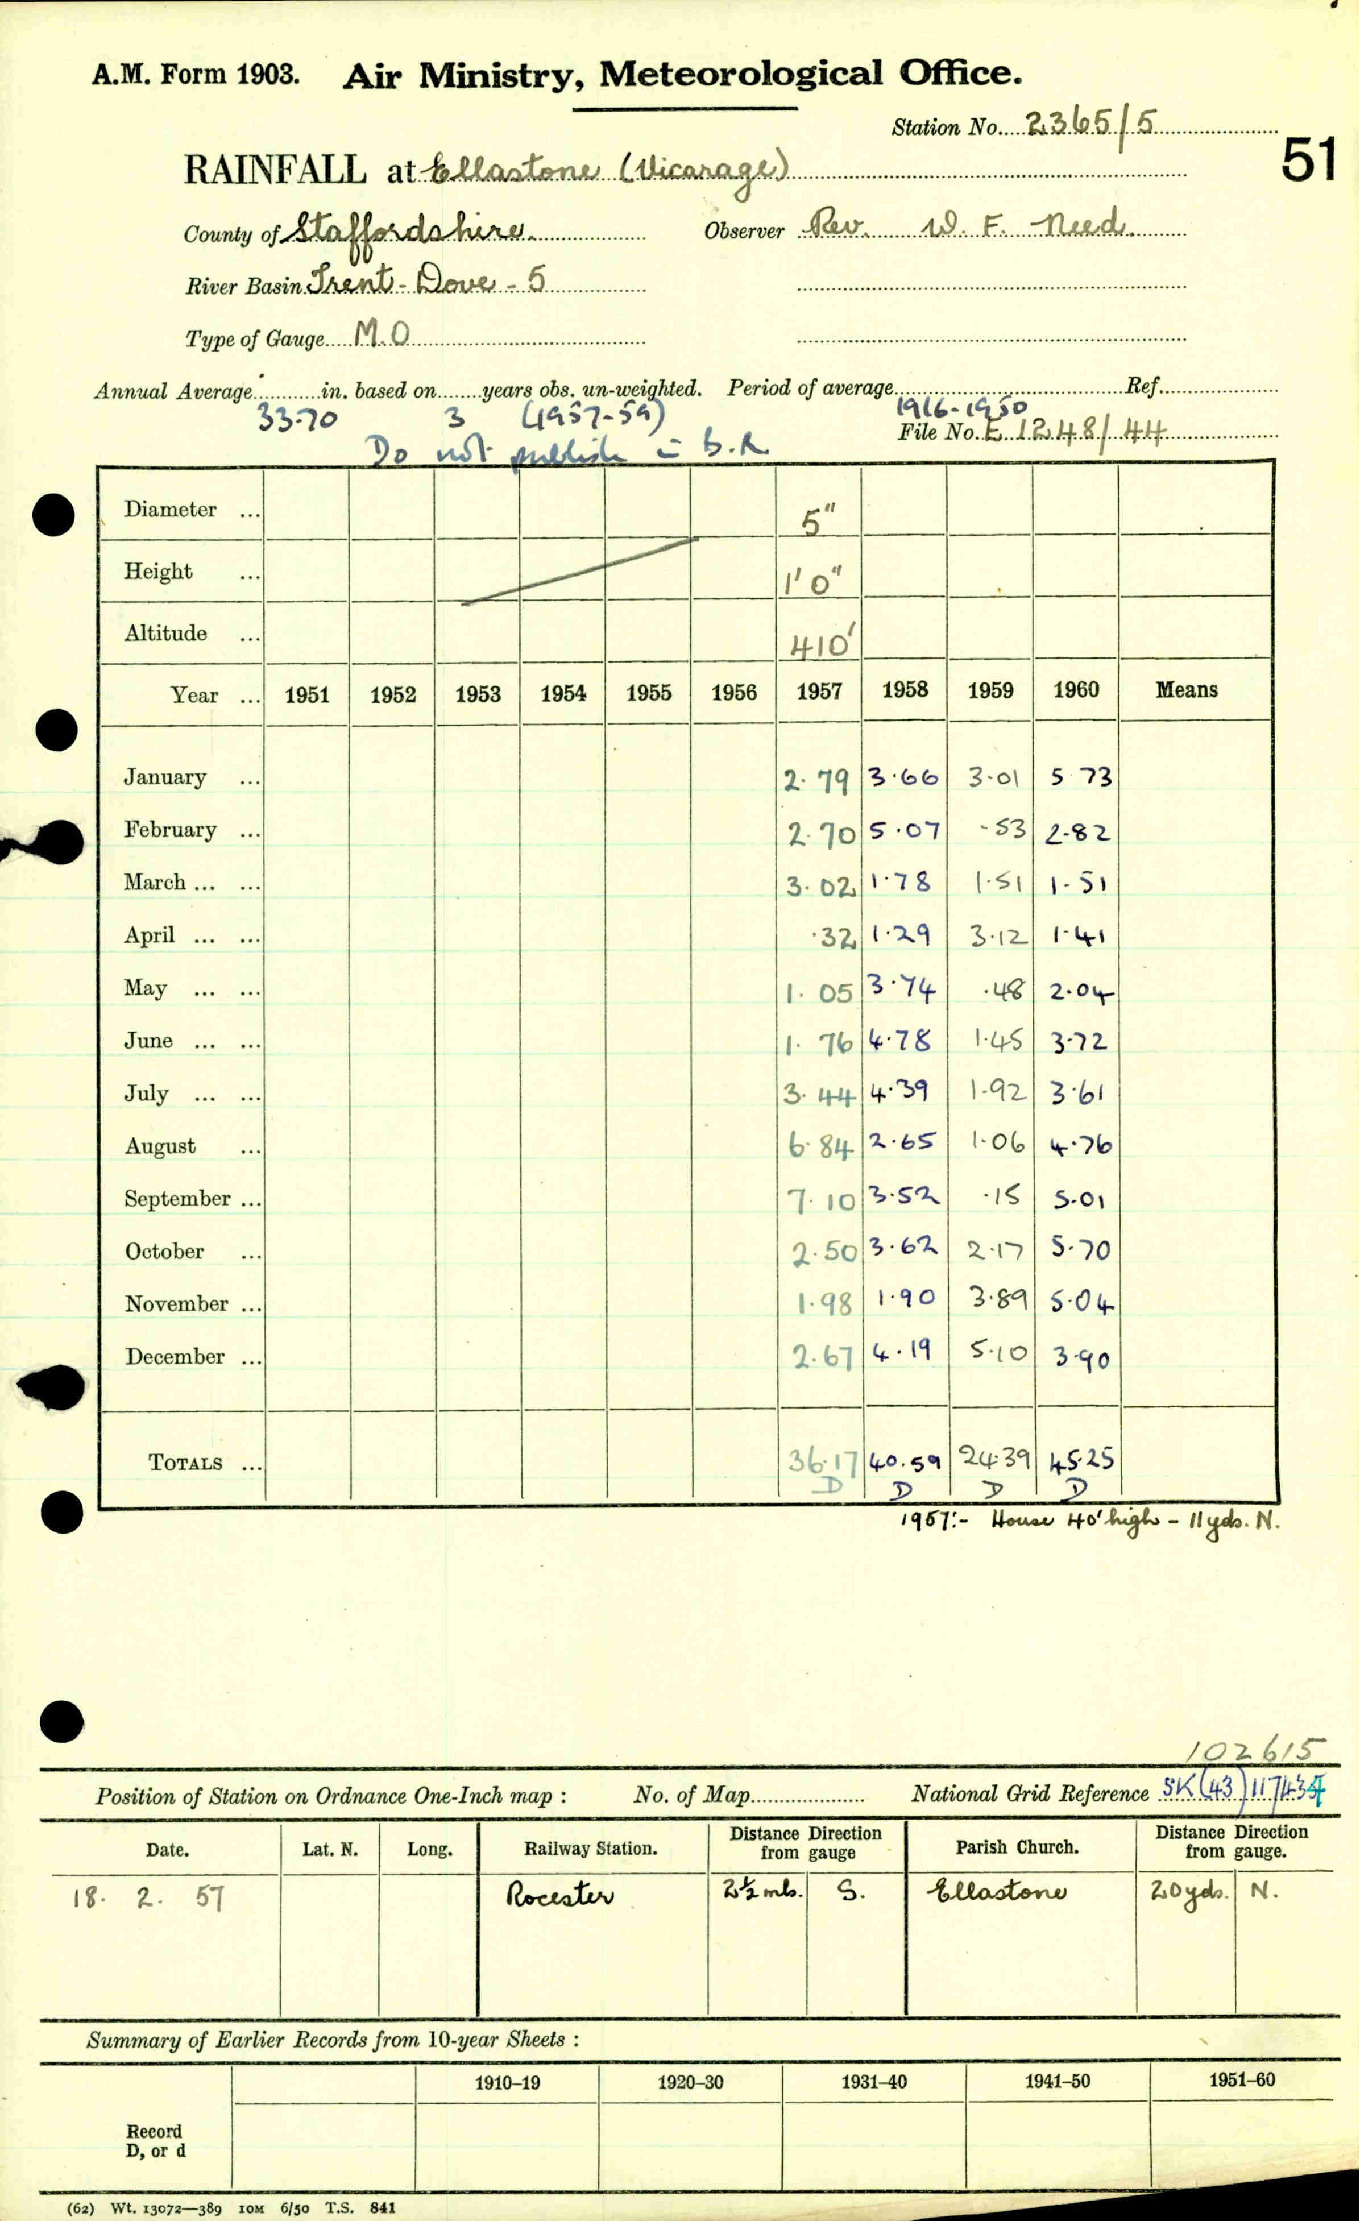 A.M. Form 1903. Air Ministry, Meteorological Office.
Station No. 2365/5
51
RAINFALL at Ellastone (Vicarage)
County of Staffordshire. Observer Rev. W. F. Need.
River Basin Trent - Dove - 5
Type of Gauge M.O
Annual Average in. based on years obs. un-weighted. Period of average Ref.
33.70 3 (1957-59) 1916-1950
File No. E 1248/44
Do not publish in B.R.
Diameter ... 5"
Height ... 1' 0"
Altitude ... 410'
Year ... 1951 1952 1953 1954 1955 1956 1957 1958 1959 1960 Means
January ... 2.79 3.66 3.01 5 73
February ... 2.70 5.07 .53 2.82
March ... ... 3.02 1.78 1.51 1.51
April ... ... .32 1.29 3.12 1.41
May ... ... 1.05 3.74 .48 2.04
June ... ... 1.76 4.78 1.45 3.72
July ... ... 3.44 4.39 1.92 3.61
August ... 6.84 2.65 1.06 4.76
September ... 7.10 3.52 .15 5.01
October ... 2.50 3.62 2.17 5.70
November ... 1.98 1.90 3.89 5.04
December ... 2.67 4.19 5.10 3.90
TOTALS ... 36.17 40.59 24.39 45.25
D D D D
1957:- House 40' high - 11 yds. N.
102615
Position of Station on Ordnance One-Inch map : No. of Map National Grid Reference SK(43)117434
Date. Lat. N. Long. Railway Station. Distance from Direction gauge Parish Church. Distance from Direction gauge.
18. 2. 57 Rocester 2½ mls. S. Ellastone 20 yds. N.
Summary of Earlier Records from 10-year Sheets :
1910–19 1920–30 1931–40 1941–50 1951–60
Record
D, or d
(62) Wt. 13072—389 10M 6/50 T.S. 841